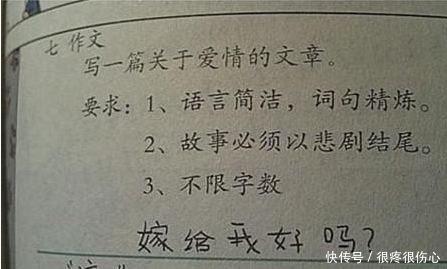 七 作文
写一篇关于爱情的文章。
要求：1、语言简洁，词句精炼。
2、故事必须以悲剧结尾。
3、不限字数
嫁给我好吗？
快传号／很疼很伤心